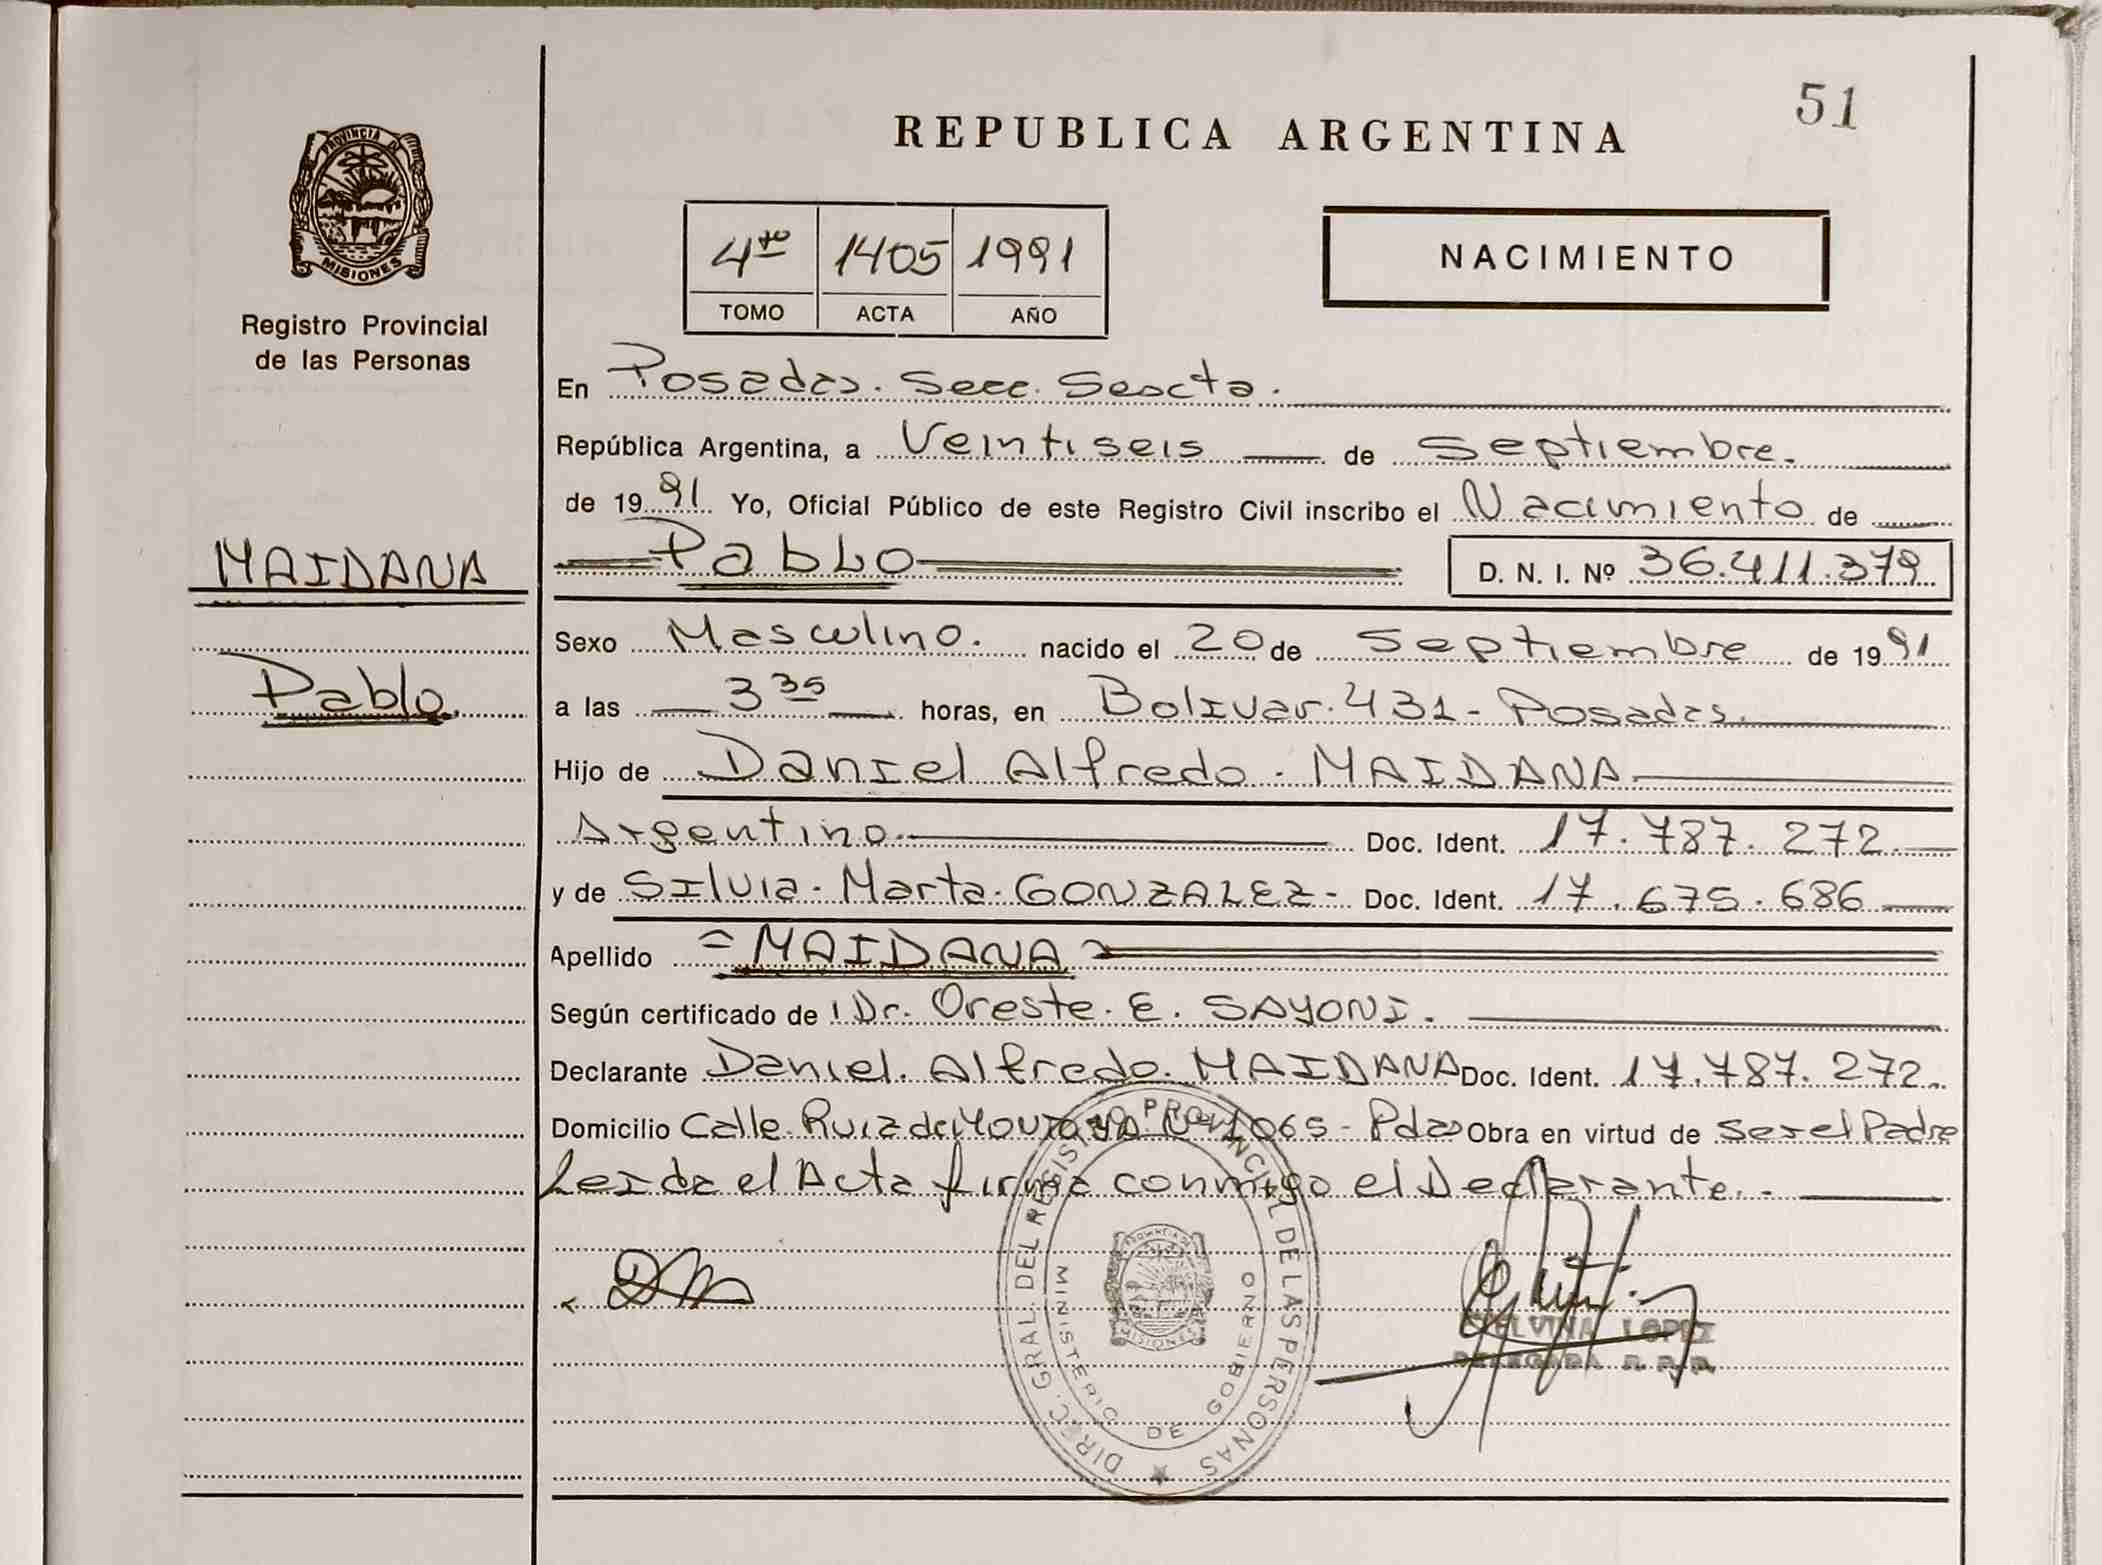 51
REPUBLICA ARGENTINA
PROVINCIA DE
MISIONES
Registro Provincial
de las Personas
4to 1405 1991
TOMO ACTA AÑO
NACIMIENTO
En Posadas. Secc. Sexcta.
República Argentina, a Veintiseis de Septiembre.
de 1991 Yo, Oficial Público de este Registro Civil inscribo el Nacimiento de
MAIDANA
Pablo
D. N. I. Nº 36.411.379
Sexo Masculino. nacido el 20 de Septiembre de 1991
Pablo
a las 3 35 horas, en Bolivar. 431 - Posadas.
Hijo de Daniel Alfredo. MAIDANA
Argentino. Doc. Ident. 17.787.272.
y de Silvia. Marta. GONZALEZ - Doc. Ident. 17.675.686
Apellido = MAIDANA
Según certificado de Dr. Oreste. E. SAYONI.
Declarante Daniel. Alfredo. MAIDANA Doc. Ident. 17.787.272.
Domicilio Calle. Ruiz de Montoya Nº 1065 - Pdas Obra en virtud de Ser el Padre
Leida el Acta firma conmigo el Declarante.
DIREC. GRAL. DEL REGISTRO PROVINCIAL DE LAS PERSONAS
MINISTERIO DE GOBIERNO
PROVINCIA DE
MISIONES
LOPEZ
DELEGADA R.P.P.